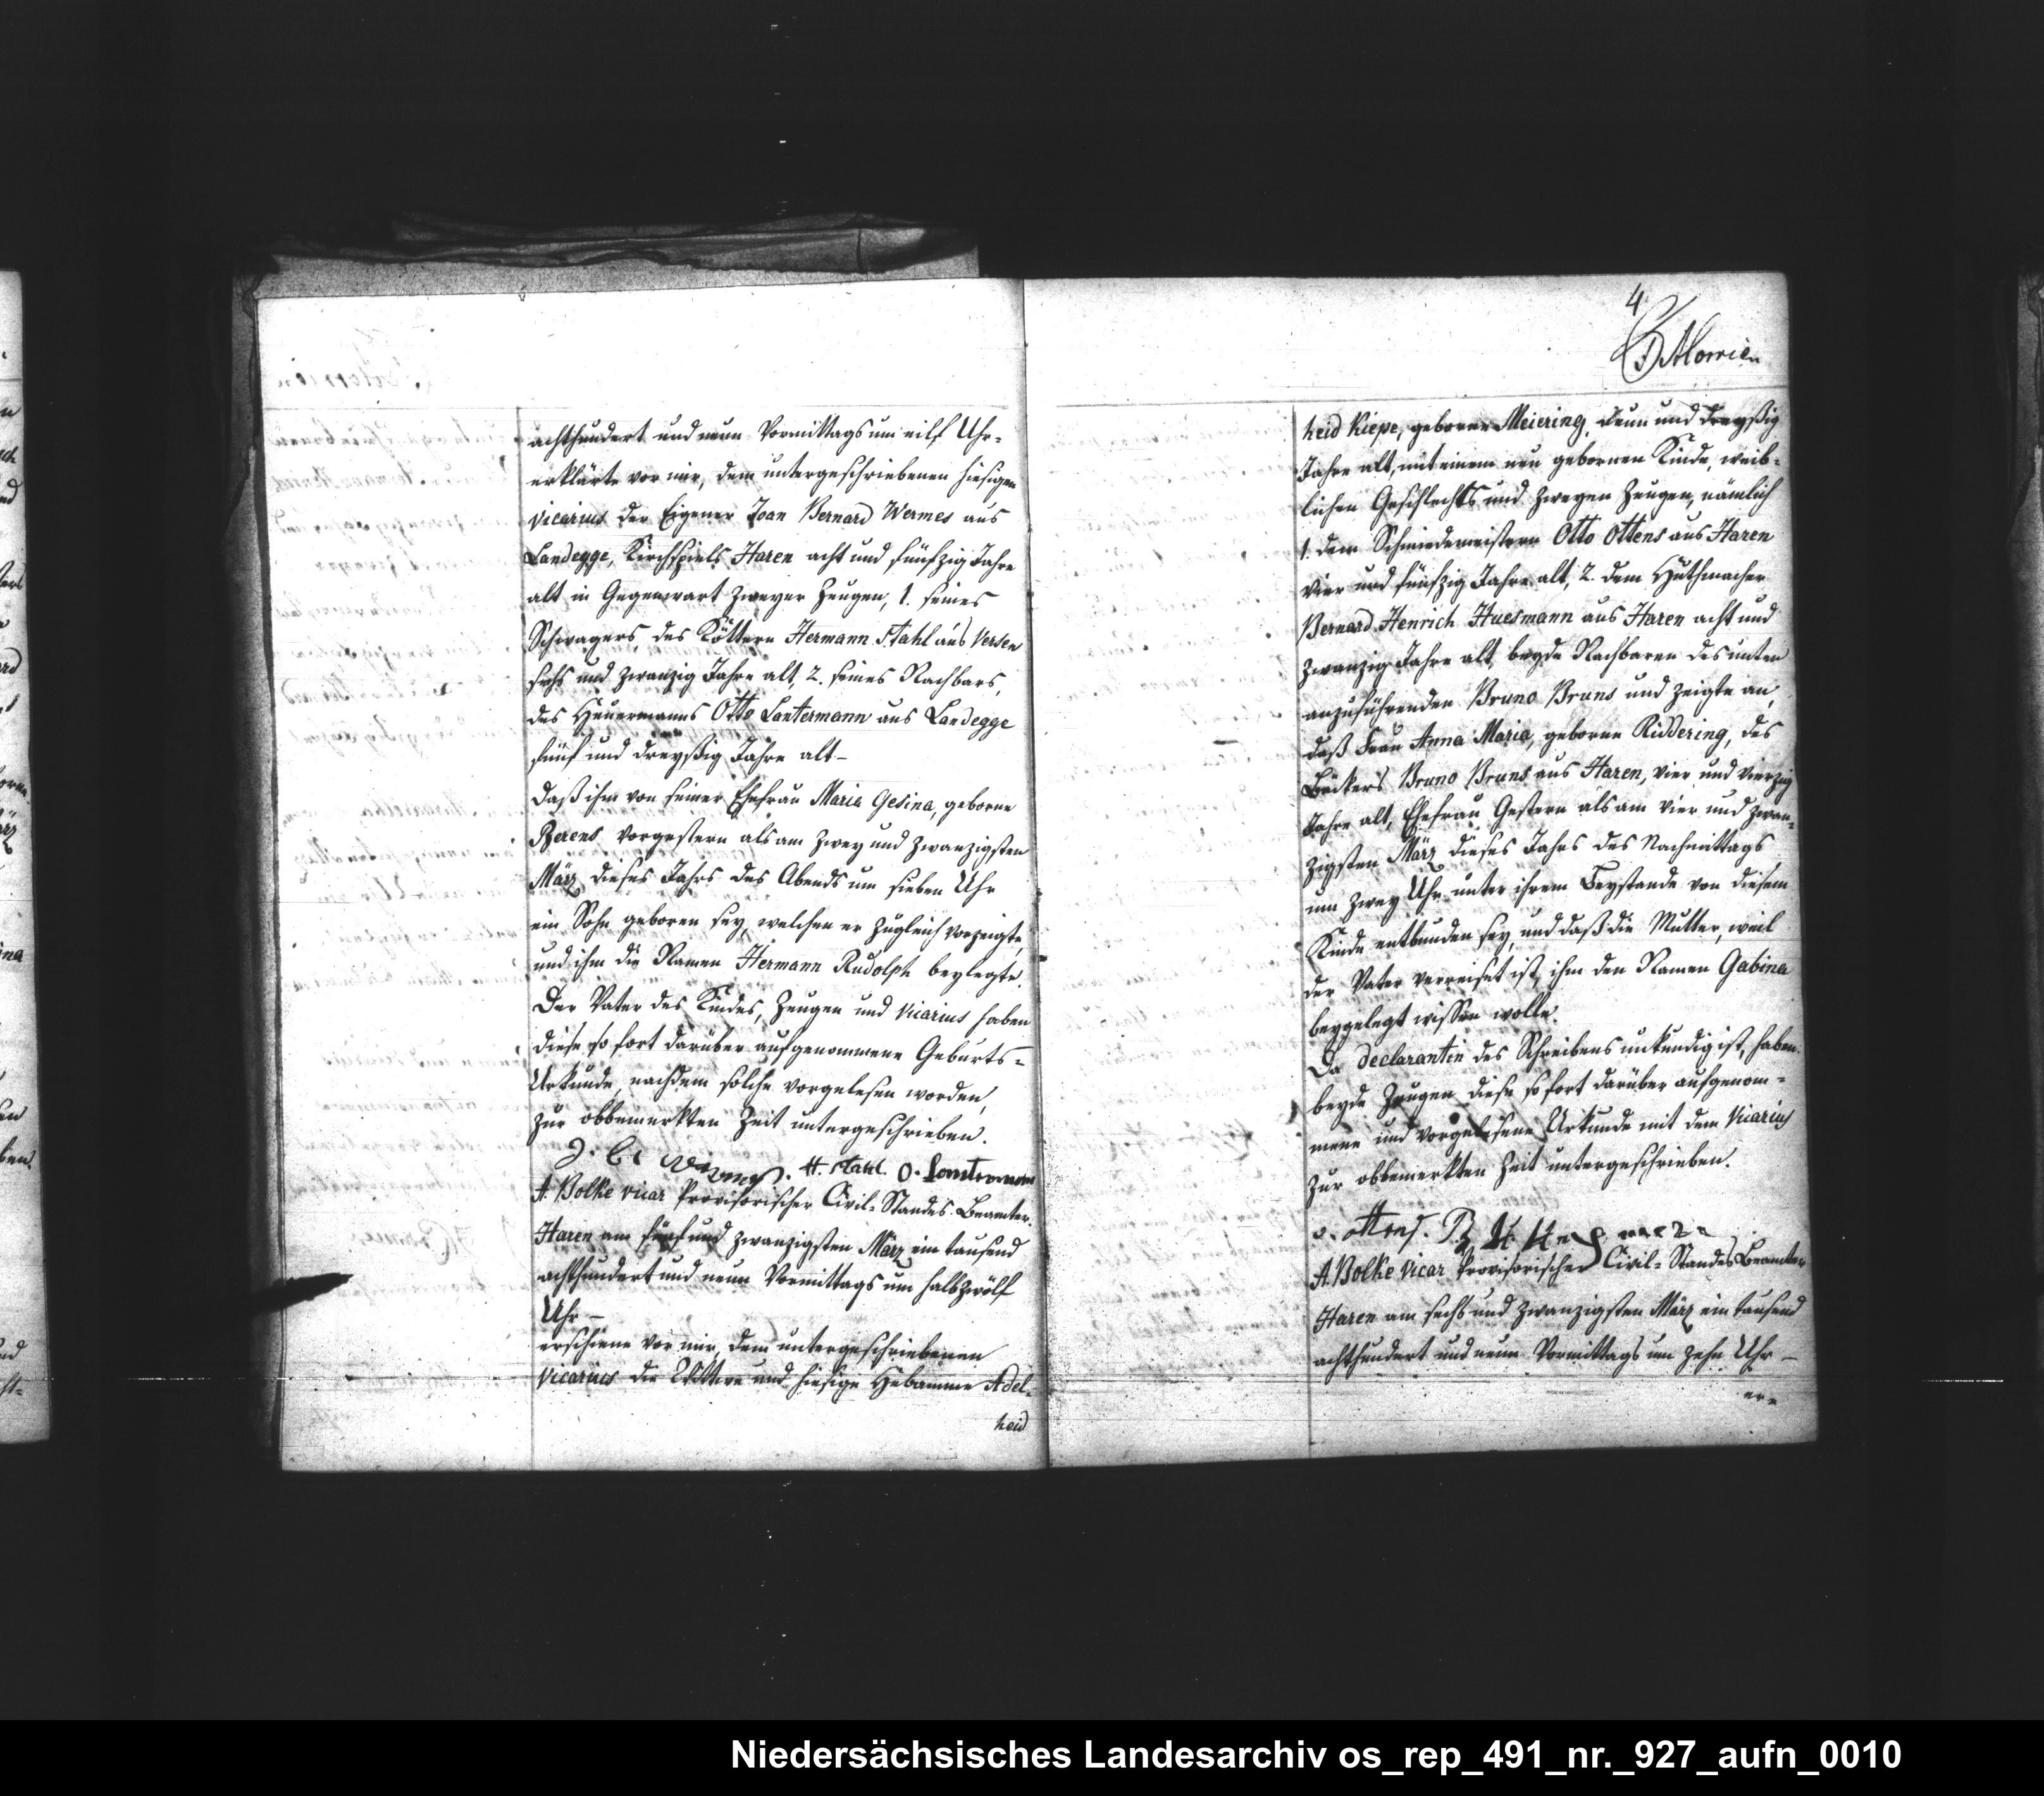 achthundert und neun Vormittags um eilf Uhr-
erklärte vor mir, dem untergeschriebenen hiesigen
Vicarius der Eigener Joan Bernard Wermes aus
Landegge, Kirchspiels Haren acht und fünfzig Jahre
alt in Gegenwart zweyer Zeugen, 1. seines
Schwagers, des Köttern Hermann Stahl aus Versen
sechs und zwanzig Jahre alt, 2. seines Nachbars,
des Heuermanns Otto Lantermann aus Landegge
fünf und dreyßig Jahre alt-
daß ihm von seiner Ehefrau Maria Gesina, geborne
Berens vorgestern als am zwey und zwanzigsten
März dieses Jahrs des Abends um sieben Uhr
ein Sohn geboren sey, welchen er zugleich vorzeigte,
und ihm die Namen Hermann Rudolph beylegte.
Der Vater des Kindes, Zeugen und Vicarius haben
diese so fort darüber aufgenommene Geburts-
Urkunde, nachdem solche vorgelesen worden,
zur obbemerkten Zeit untergeschrieben.
J. B. Wermes. H. Stahl. O. Lantermann
A. Bolke vicar Provisorischer Civil-Standes-Beamter.
Haren am fünf und zwanzigsten März ein tausend
achthundert und neun Vormittags um halb zwölf
Uhr-
erschiene vor mir, dem untergeschriebenen
Vicarius die Wittwe und hiesige Hebamme Adel-
heid
4
heid Kiepe, geborne Meiering, neun und dreyßig
Jahre alt, mit einem neu gebornen Kinde, weib-
lichen Geschlechts und zweyen Zeugen, nämlich
1. dem Schmiedemeistern Otto Ottens aus Haren
vier und fünfzig Jahre alt, 2. dem Huthmacher
Bernard Henrich Huesmann aus Haren acht und
zwanzig Jahre alt, beyde Nachbaren des unten
anzuführenden Bruno Bruns und zeigte an,
daß Frau Anna Maria, geborne Riddering, des
Bäckers Bruno Bruns aus Haren, vier und vierzig
Jahre alt, Ehefrau Gestern als am vier und zwan-
zigsten März dieses Jahrs des Nachmittags
um zwey Uhr unter ihrem Beystande von diesem
Kinde entbunden sey, und daß die Mutter, weil
der Vater verreiset ist, ihm den Namen Gabina
beygelegt wissen wolle.
Da declarantin des Schreibens unkundig ist, haben
beyde Zeugen diese so fort darüber aufgenom-
mene und vorgelesene Urkunde mit dem Vicarius
zur obbemerkten Zeit untergeschrieben.
o. ottens. B H Huesmann
A. Bolke vicar Provisorischer Civil-Standes Beamter
Haren am sechs und zwanzigsten März ein tausend
achthundert und neun Vormittags um zehn Uhr-
er-
Niedersächsisches Landesarchiv os_rep_491_nr._927_aufn_0010